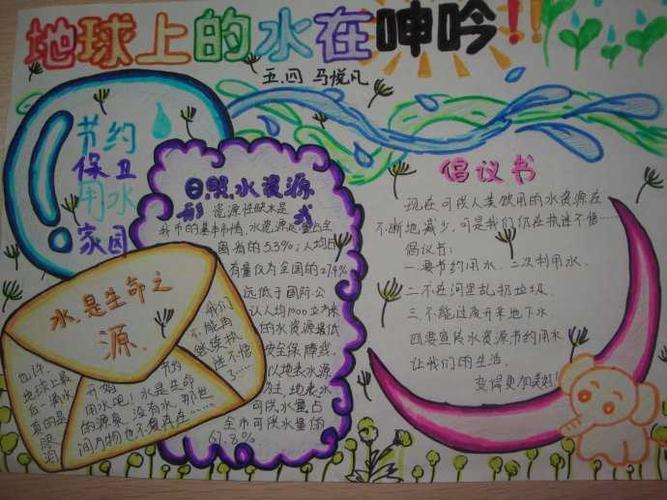 地球上的水在呻吟!!
五.四 马悦凡
节约
保卫
用水
家园
日照水资源
形 势
资源性缺水是
我市的基本市情,水资源总量占全
省有的5.3%;人均占
有量仅为全国的24%
远低于国际公
认人均1000立方米
的水资源最低
安全保障线。
以地表水源
为主,地表水
可供水量占
全市可供水量的
67.8%
水,是生命之
源.
也许,
地球上最
后一滴水
真的是
眼泪
节约
开始
用水吧!水是生命
的源泉,没有水,那世
间万物也不复存在……
我们
不能再
继续执
迷不悟
了……
倡议书
现在可供人类饮用的水资源在
不断地减少,可是我们仍在执迷不悟……
倡议书:
一.要节约用水,二次利用水.
二.不在河里乱扔垃圾.
三.不能过度开采地下水
四.要宣传水资源节约用水
让我们的生活,
变得更加美好!